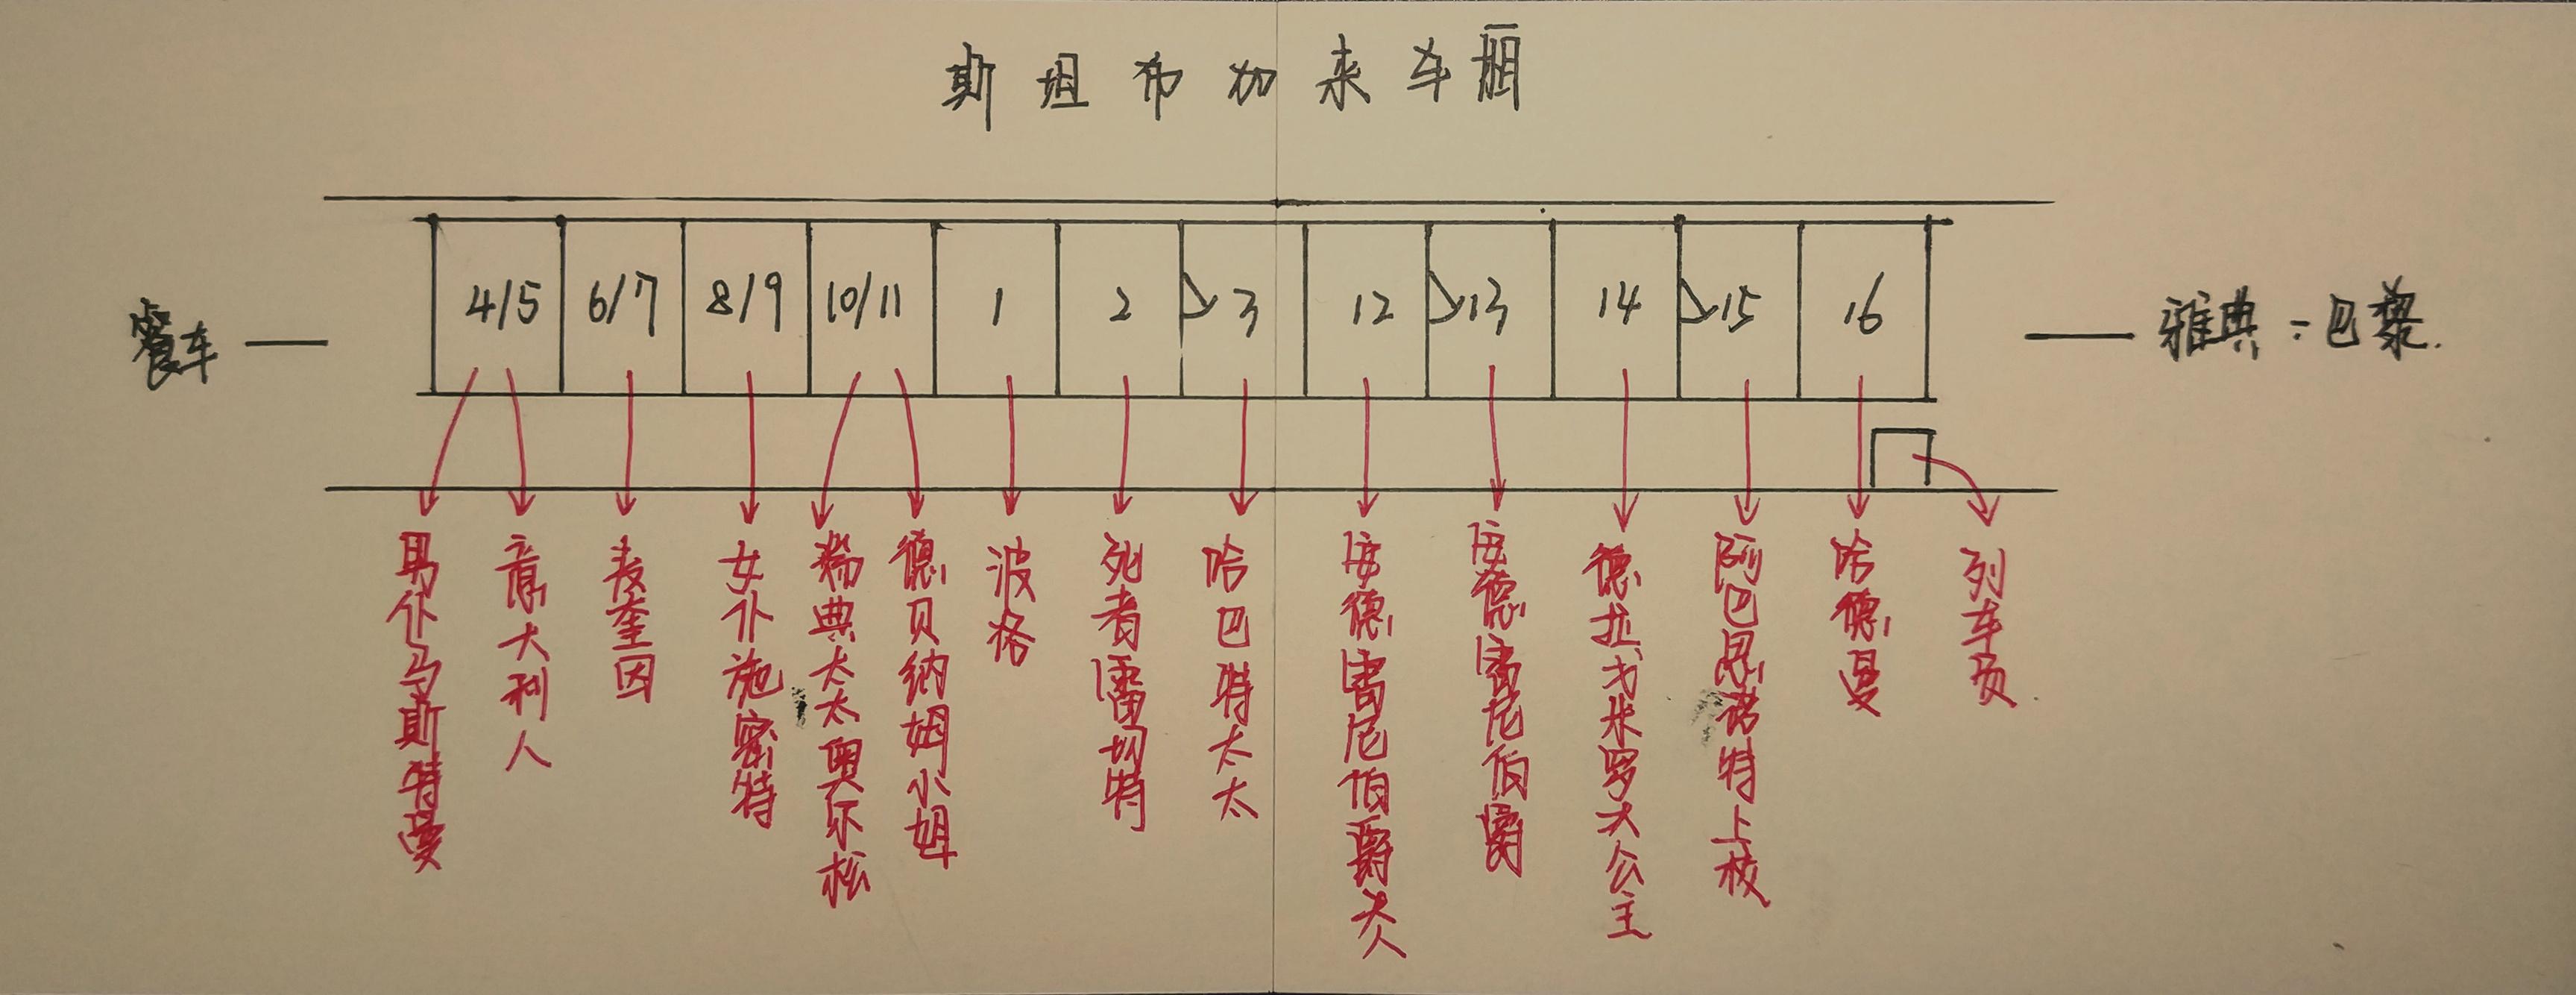 斯坦布加来车厢
餐车
4/5
6/7
8/9
10/11
1
2
3
12
13
14
15
16
雅典：巴黎.
男仆马斯特曼
意大利人
麦奎因
女仆施密特
瑞典太太奥尔松
德贝纳姆小姐
波格
死者雷切特
哈巴特太太
安德雷尼伯爵夫人
安德雷尼伯爵
德拉戈米罗夫公主
阿巴思诺特上校
哈德曼
列车员